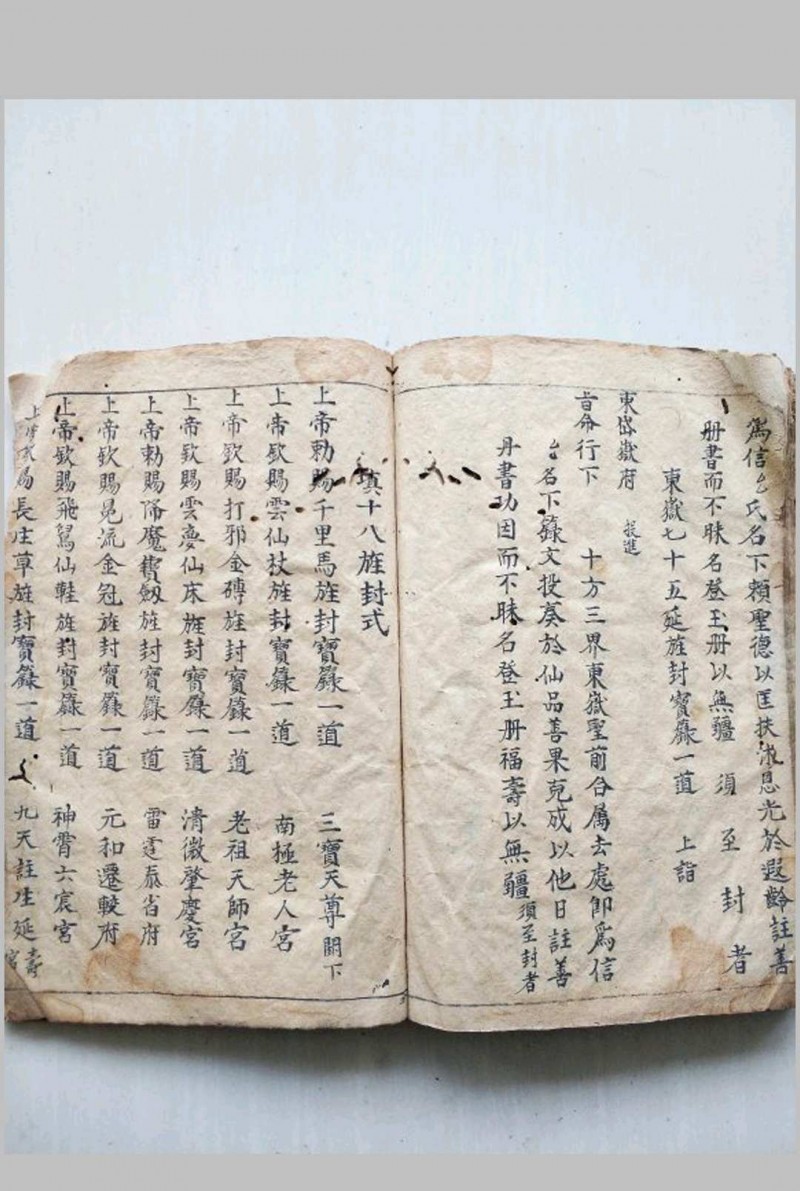 爲信厶氏名下賴聖德以匡扶淑恩光於遐齡註善
册書而不昧名登玉册以無疆　須至封者
東嶽七十五延旌封寶籙一道　上詣
東岱嶽府　投進
旨命行下　十方三界東嶽聖前合属去處即爲信
厶名下籙文投奏於仙品善果克成以他日註善
丹書功因而不昧名登玉册福壽以無疆須至封者
填十八旌封式
上帝勅賜千里馬旌封寶籙一道　三寶天尊闕下
上帝欽賜雲仙杖旌封寶籙一道　南極老人宮
上帝欽賜打邪金磚旌封寶籙一道　老祖天師宮
上帝欽賜雲夢仙床旌封寶籙一道　清微肇慶宮
上帝勅賜降魔寶劔旌封寶籙一道　雷霆泰省府
上帝欽賜冕流金冠旌封寶籙一道　元和遷較府
上帝欽賜飛舄仙鞋旌封寶籙一道　神霄六宸宮
上帝欽賜長庄草旌封寶籙一道　九天註生延壽宮